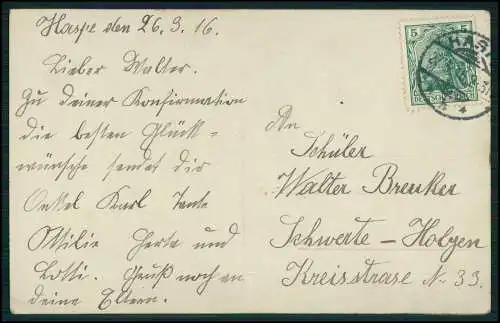 Haspe den 26.3.16.
Lieber Walter.
Zu deiner Konfirmation
die besten Glück-
wünsche sendet dir
Onkel Karl Tante
Ottilie Herta und
Lotti. Gruß noch an
deine Eltern.
An
Schüler
Walter Breuker
Schwerte - Holzen
Kreisstrase N. 33.
5 5
HASP